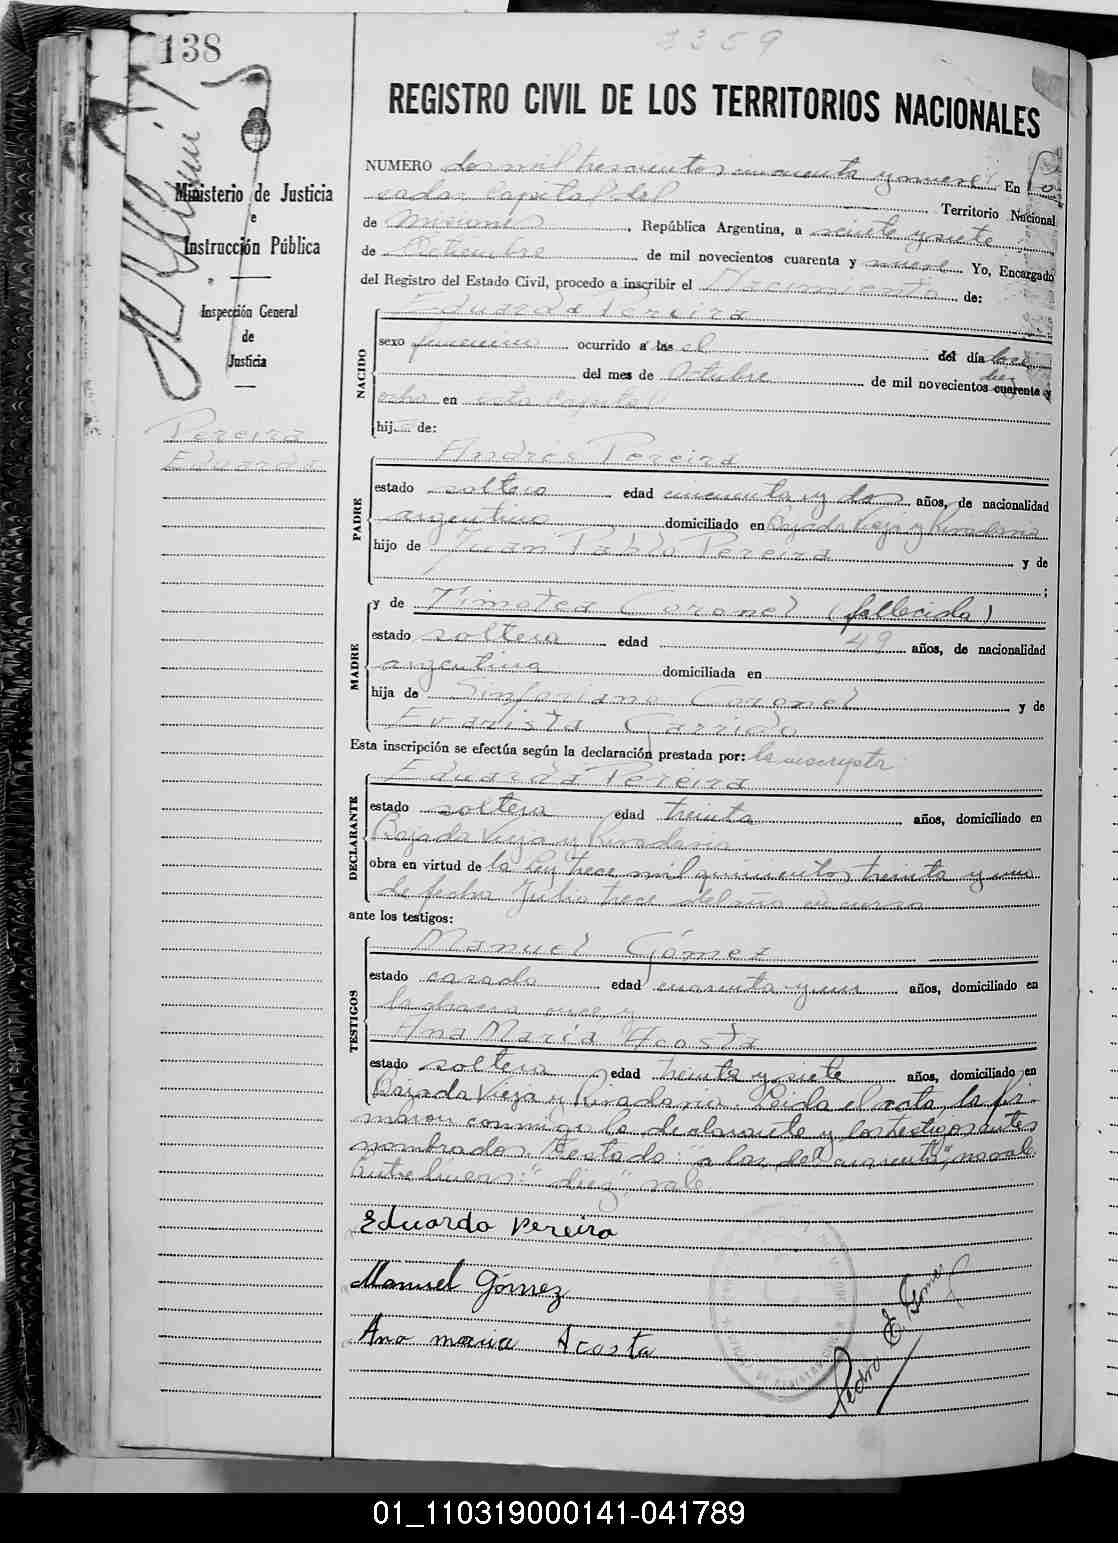 138
2359
REGISTRO CIVIL DE LOS TERRITORIOS NACIONALES
Ministerio de Justicia
e
Instrucción Pública
Inspección General
de
Justicia
Pereira
Eduarda
NUMERO dos mil trescientos cincuenta y nueve En Po
sadas Capital del Territorio Nacional
de Misiones, República Argentina, a veinte y siete
de Octubre de mil novecientos cuarenta y nueve Yo, Encargado
del Registro del Estado Civil, procedo a inscribir el Nacimiento de:
NACIDO
Eduarda Pereira
sexo femenino ocurrido a las el del día trece
del mes de Octubre de mil novecientos cuarenta y
diez
ocho en esta Capital
hija de:
PADRE
Andrés Pereira
estado soltero edad cincuenta y dos años, de nacionalidad
argentino domiciliado en Bajada Vieja y Rivadavia
hijo de Juan Pablo Pereira y de
;
MADRE
y de Timotea Coronel (fallecida)
estado soltera edad 49 años, de nacionalidad
argentina domiciliada en
hija de Sinforiano Coronel y de
Evarista Garrido
Esta inscripción se efectúa según la declaración prestada por: la inscripta
DECLARANTE
Eduarda Pereira
estado soltera edad treinta años, domiciliado en
Bajada Vieja y Rivadavia
obra en virtud de la ley trece mil quinientos treinta y uno
de fecha Julio trece del año en curso
ante los testigos:
TESTIGOS
Manuel Gómez
estado casado edad cuarenta y un años, domiciliado en
la chacra once y
Ana María Acosta
estado soltera edad treinta y siete años, domiciliado en
Bajada Vieja y Rivadavia. Leida el acta, la fir-
maron conmigo la declarante y los testigos antes
nombrados. Testado: "a las, del cuarenta", no vale.
Entre lineas: "diez", vale
Eduarda Pereira
Manuel Gómez
Ana maria Acosta
Pedro E. Gomez
01_110319000141-041789